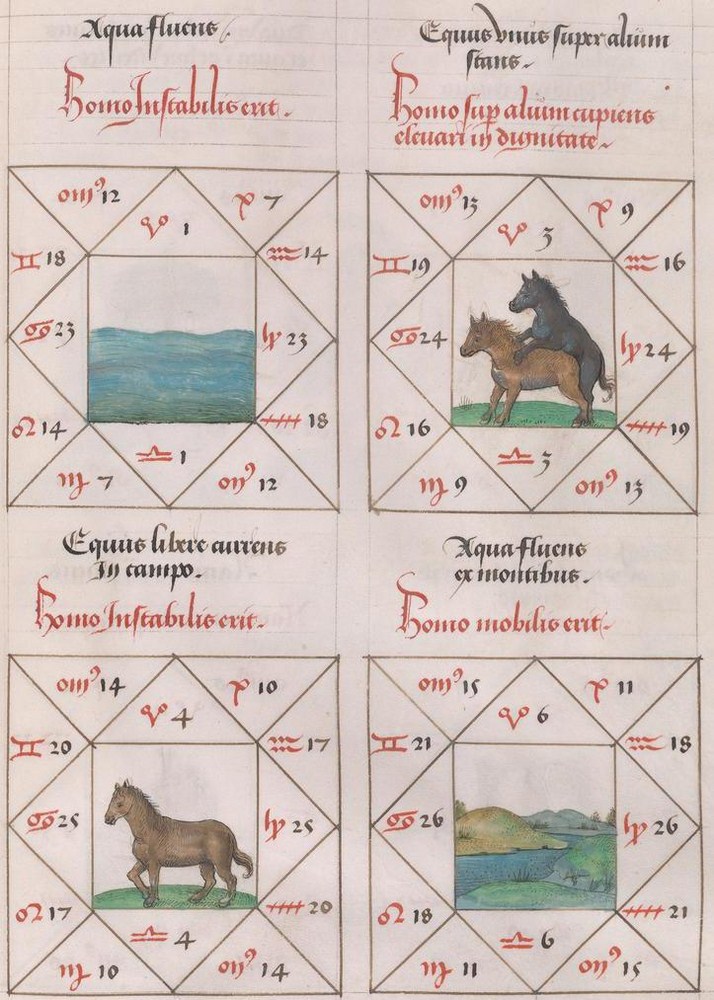 Aqua fluens
Homo Instabilis erit.
♉ 12
♓ 7
♈ 1
♊ 18
♒ 14
♋ 23
♑ 23
♌ 14
♐ 18
♎ 1
♍ 7
♏ 12
Equus vnus super alium
stans
Homo sup alium cupiens
eleuari in dignitate
♉ 13
♓ 9
♈ 3
♊ 19
♒ 16
♋ 24
♑ 24
♌ 16
♐ 19
♎ 3
♍ 9
♏ 13
Equus libere currens
In campo.
Homo Instabilis erit.
♉ 14
♓ 10
♈ 4
♊ 20
♒ 17
♋ 25
♑ 25
♌ 17
♐ 20
♎ 4
♍ 10
♏ 14
Aqua fluens
ex montibus.
Homo mobilis erit.
♉ 15
♓ 11
♈ 6
♊ 21
♒ 18
♋ 26
♑ 26
♌ 18
♐ 21
♎ 6
♍ 11
♏ 15